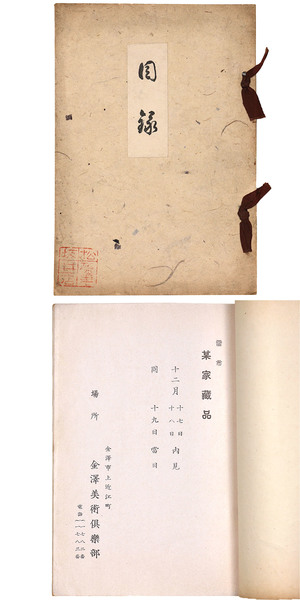 目録
某家蔵品
十二月 十七日 十八日 内見
同 十九日 當日
場所
金澤市上近江町
金澤美術倶樂部